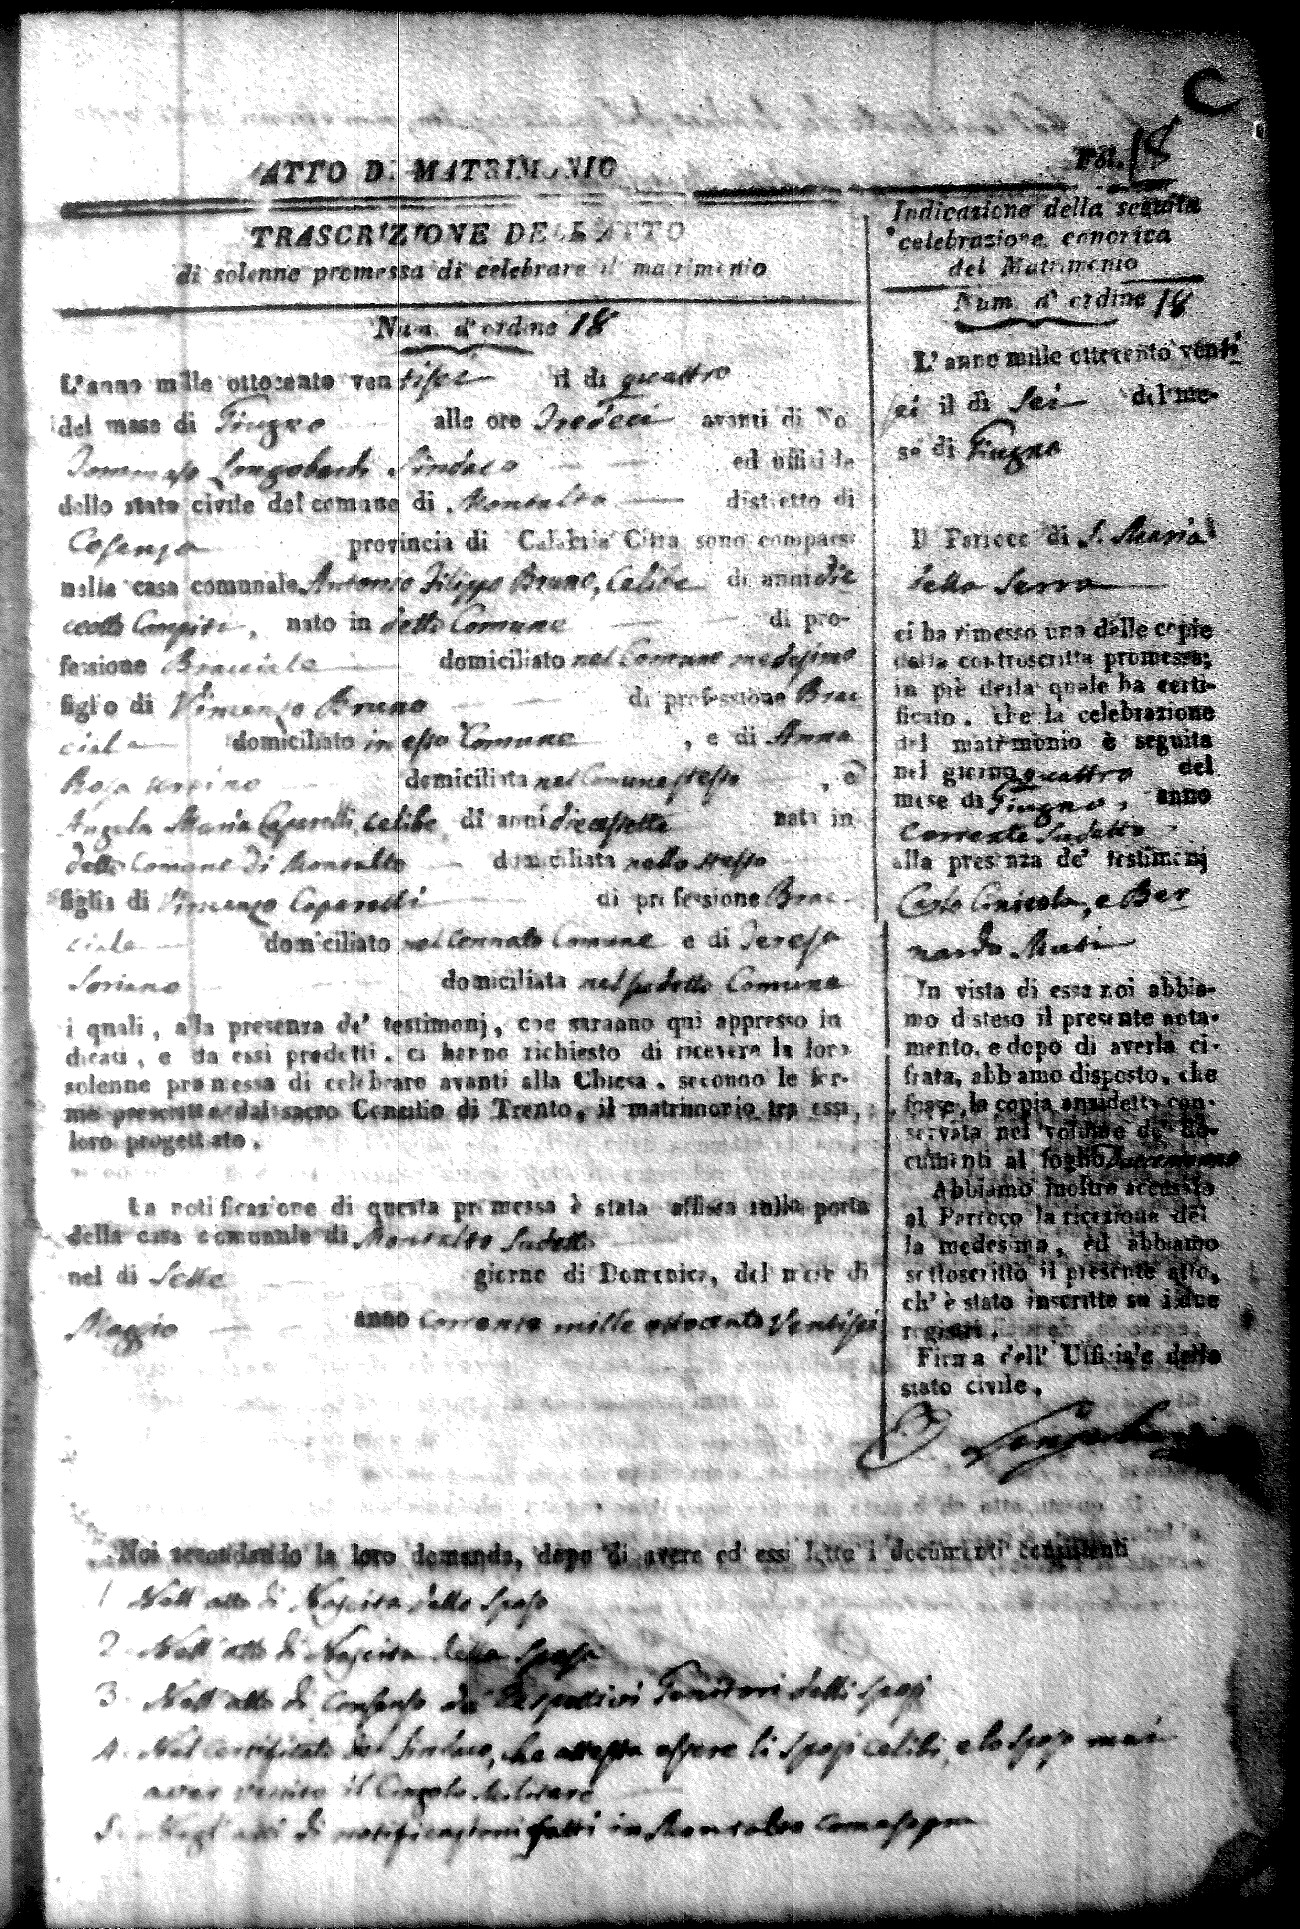 C
ATTO DI MATRIMONIO
Fol. 18
TRASCRIZIONE DELL'ATTO
di solenne promessa di celebrare il matrimonio
Num. d'ordine 18
L'anno mille ottocento ventisei il di quattro
del mese di Giugno alle ore Tredeci avanti di No
Tommaso Longobardi Sindaco ed uffiziale
dello stato civile del comune di Montalto distretto di
Cosenza provincia di Calabria Citra sono comparsi
nella casa comunale Antonio Filippo Bruno, Celibe di anni die
ciotto Compiti, nato in detto Comune di pro-
fessione Bracciale domiciliato nel Comune medesimo
figlio di Vincenzo Bruno di professione Brac
ciale domiciliato in esso Comune, e di Anna
Rosa domiciliata nel Comune stesso, e
Angela Maria Caparelli, celibe di anni diecisette nata in
detto Comune di Montalto domiciliata nello stesso
figlia di Vincenzo Caparelli di professione Brac
ciale domiciliato nel cennato Comune e di Teresa
Soriano domiciliata nel sudetto Comune
i quali, alla presenza de' testimonj, che saranno qui appresso in
dicati, e da essi prodotti, ci hanno richiesto di ricevere la loro
solenne promessa di celebrare avanti alla Chiesa, secondo le for-
me prescritte dal sacro Concilio di Trento, il matrimonio tra essi
loro progettato.
La notificazione di questa promessa è stata affissa sulla porta
della casa comunale di Montalto Sudetto
nel di Sette giorno di Domenica, del mese di
Maggio anno Corrente mille ottocento Ventisei
Indicazione della seguita
celebrazione canonica
del Matrimonio
Num. d'ordine 18
L'anno mille ottocento venti
sei il di Sei del me-
se di Giugno
Il Parroco di S. Maria
della Serra
ci ha rimesso una delle copie
della controscritta promessa;
in piè della quale ha certi-
ficato, che la celebrazione
del matrimonio è seguita
nel giorno quattro del
mese di Giugno, anno
Corrente Sudetto
alla presenza de' testimonj
Carlo e Ber
nardo
In vista di essa noi abbia-
mo disteso il presente nota-
mento, e dopo di averla ci-
frata, abbiamo disposto, che
fosse la copia anzidetta con-
servata nel volume de' do-
cumenti al foglio
Abbiamo inoltre accusato
al Parroco la ricezione del
la medesima, ed abbiamo
sottoscritto il presente atto,
ch'è stato inscritto su i due
registri.
Firma dell' Uffiziale dello
stato civile.
Longobardi
Noi secondando la loro domanda, dopo di avere ad essi letto i documenti consistenti
1 Nell'atto di Nascita dello Sposo
2 Nell'atto di Nascita della Sposa
3 Nell'atto di Consenso de' Respettivi Genitori delli Sposi
4 Nel Certificato del Sindaco, che attesta essere li Sposi celibi, e lo Sposo mai
aver vestito il Cingolo Militare
5 Negl'atti di notificazioni fatti in Montalto come sopra